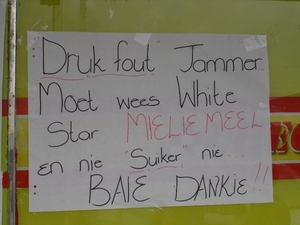 Druk fout Jammer.
Moet wees White
Star MIELIE MEEL
en nie "Suiker" nie...
BAIE DANKIE!!